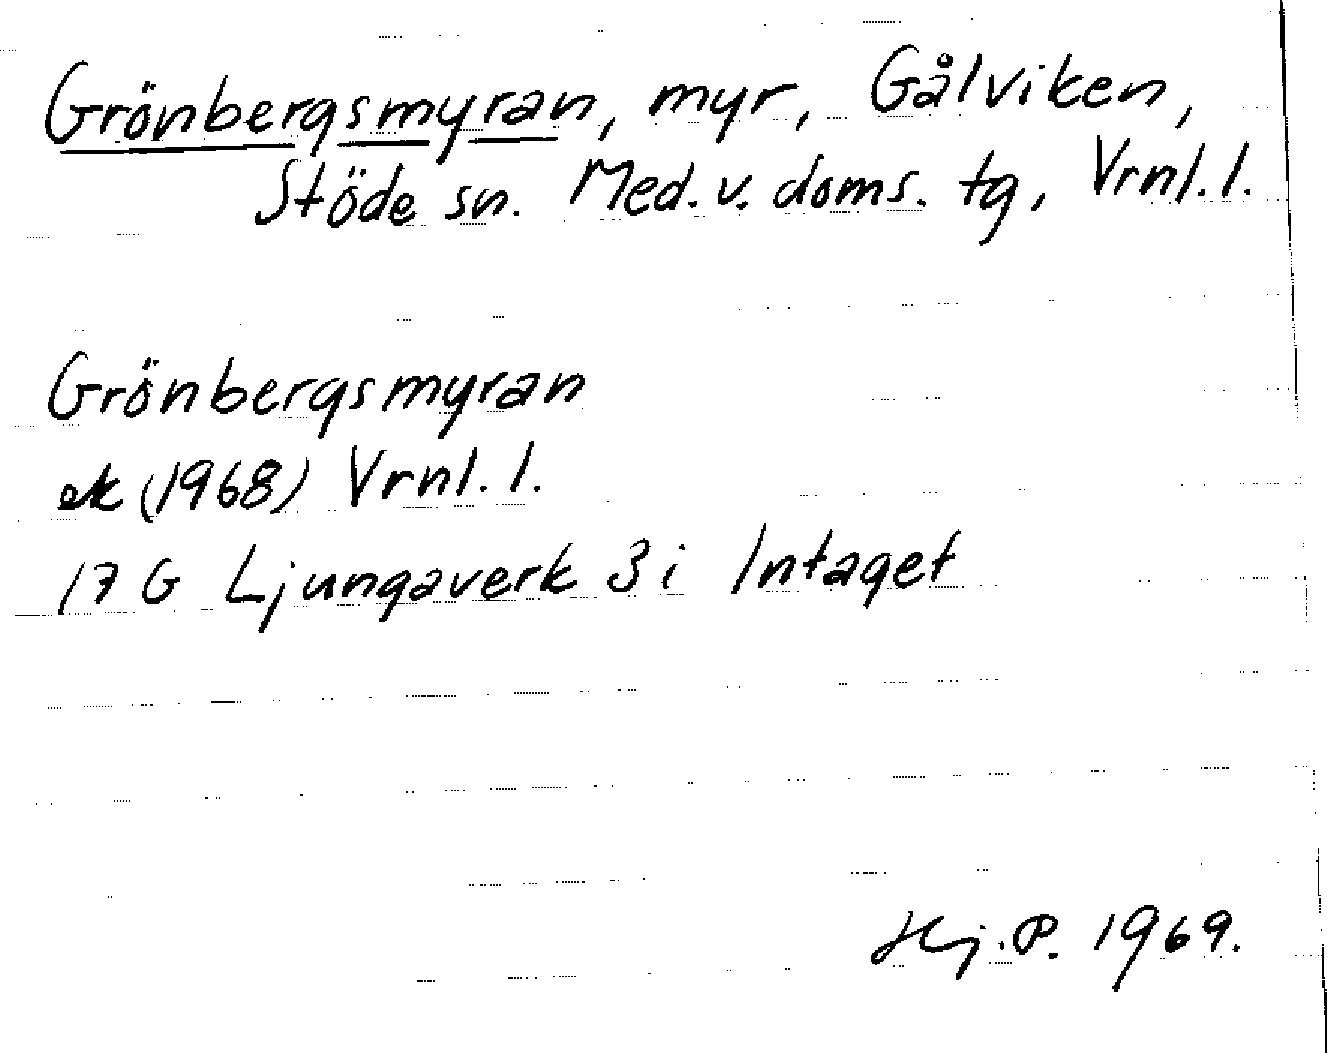 Grönbergsmyran, myr, Gålviken,
Stöde sn. Med. v. doms. tg, Vrnl. l.
Grönbergsmyran
ek (1968) Vrnl. l.
17 G Ljungaverk 3 i Intaget
Hj. P. 1969.